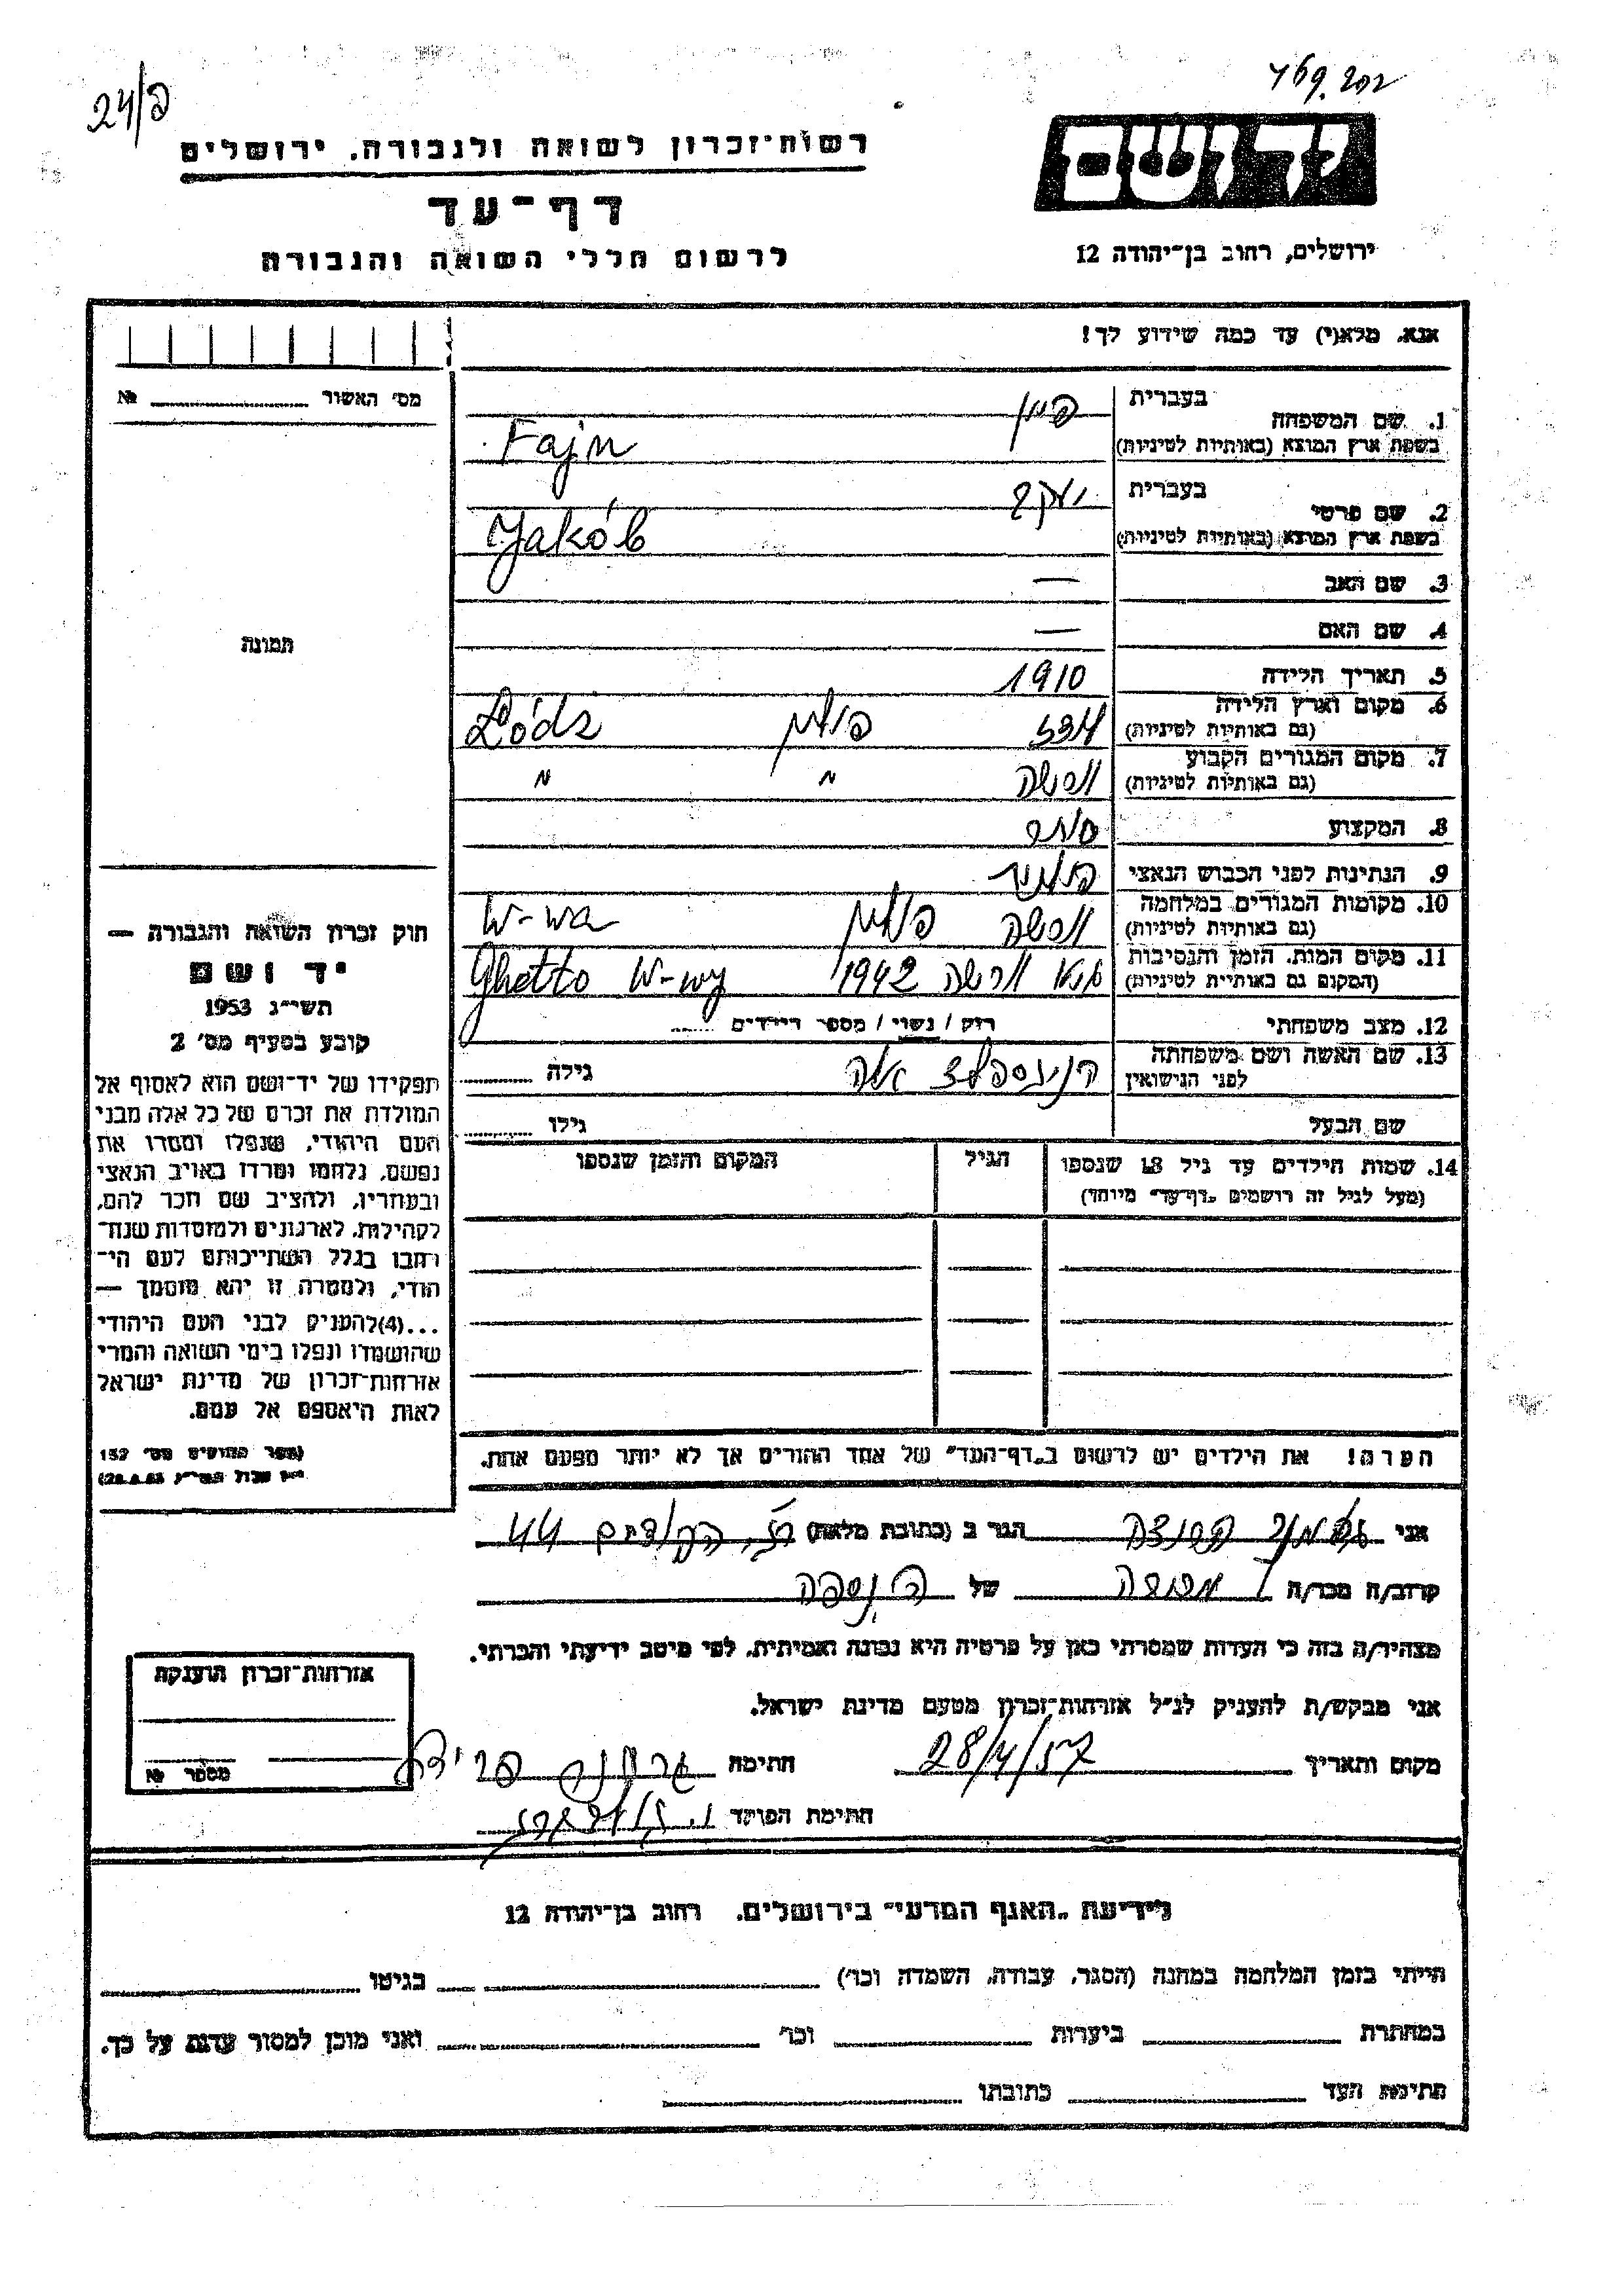 24/פ
רשות-זכרון לשואה ולגבורה, ירושלים
דף-עד
לרשום חללי השואה והגבורה
יד ושם
ירושלים, רחוב בן-יהודה 12
אנא, מלא(י) עד כמה שידוע לך!
מס' האשור №
תמונה
1. שם המשפחה
בעברית פיין
בשפת ארץ המוצא (באותיות לטיניות) Fajn
2. שם פרטי
בעברית יעקב
בשפת ארץ המוצא (באותיות לטיניות) Jakób
3. שם האב —
4. שם האם —
5. תאריך הלידה 1910
6. מקום וארץ הלידה (גם באותיות לטיניות) לודז פולין Łódz
7. מקום המגורים הקבוע (גם באותיות לטיניות) ורשה " "
8. המקצוע סוחר
9. הנתינות לפני הכבוש הנאצי פולנית
10. מקומות המגורים במלחמה (גם באותיות לטיניות) ורשה פולין W-wa
11. מקום המות, הזמן והנסיבות (המקום גם באותיית לטיניות) גיטו ורשה 1942 Ghetto W-wy
12. מצב משפחתי רוק / נשוי / מספר הילדים
13. שם האשה ושם משפחתה לפני הנישואין
גילה
שם הבעל גילו
14. שמות הילדים עד גיל 18 שנספו
(מעל לגיל זה רושמים „דף-עד" מיוחד)
הגיל
המקום והזמן שנספו
הערה! את הילדים יש לרשום ב„דף-העד" של אחד ההורים אך לא יותר מפעם אחת.
חוק זכרון השואה והגבורה —
יד ושם
תשי"ג 1953
קובע בסעיף מס' 2
תפקידו של יד-ושם הוא לאסוף אל
המולדת את זכרם של כל אלה מבני
העם היהודי, שנפלו ומסרו את
נפשם, נלחמו ומרדו באויב הנאצי
ובעוזריו, ולהציב שם וזכר להם,
לקהילות, לארגונים ולמוסדות שנח־
רבו בגלל השתייכותם לעם הי־
הודי, ולמטרה זו יהא מוסמך —
...(4) להעניק לבני העם היהודי
שהושמדו ונפלו בימי השואה והמרי
אזרחות-זכרון של מדינת ישראל
לאות היאספם אל עמם.
(ספר החוקים מס' 132
אני הגר ב (כתובת מלאה) 44
קרוב/ה מכר/ה של הנספה
מצהיר/ה בזה כי העדות שמסרתי כאן על פרטיה היא נכונה ואמיתית, לפי מיטב ידיעתי והכרתי.
אני מבקש/ת להעניק לנ"ל אזרחות-זכרון מטעם מדינת ישראל.
מקום ותאריך 28/4/57 חתימה
חתימת הפוקד
אזרחות-זכרון הוענקה
מספר №
לידיעת „האגף המדעי" בירושלים, רחוב בן-יהודה 12
הייתי בזמן המלחמה במחנה (הסגר, עבודה, השמדה וכו') בגיטו
במחתרת ביערות וכו' ואני מוכן למסור עדות על כך.
חתימת העד כתובתו